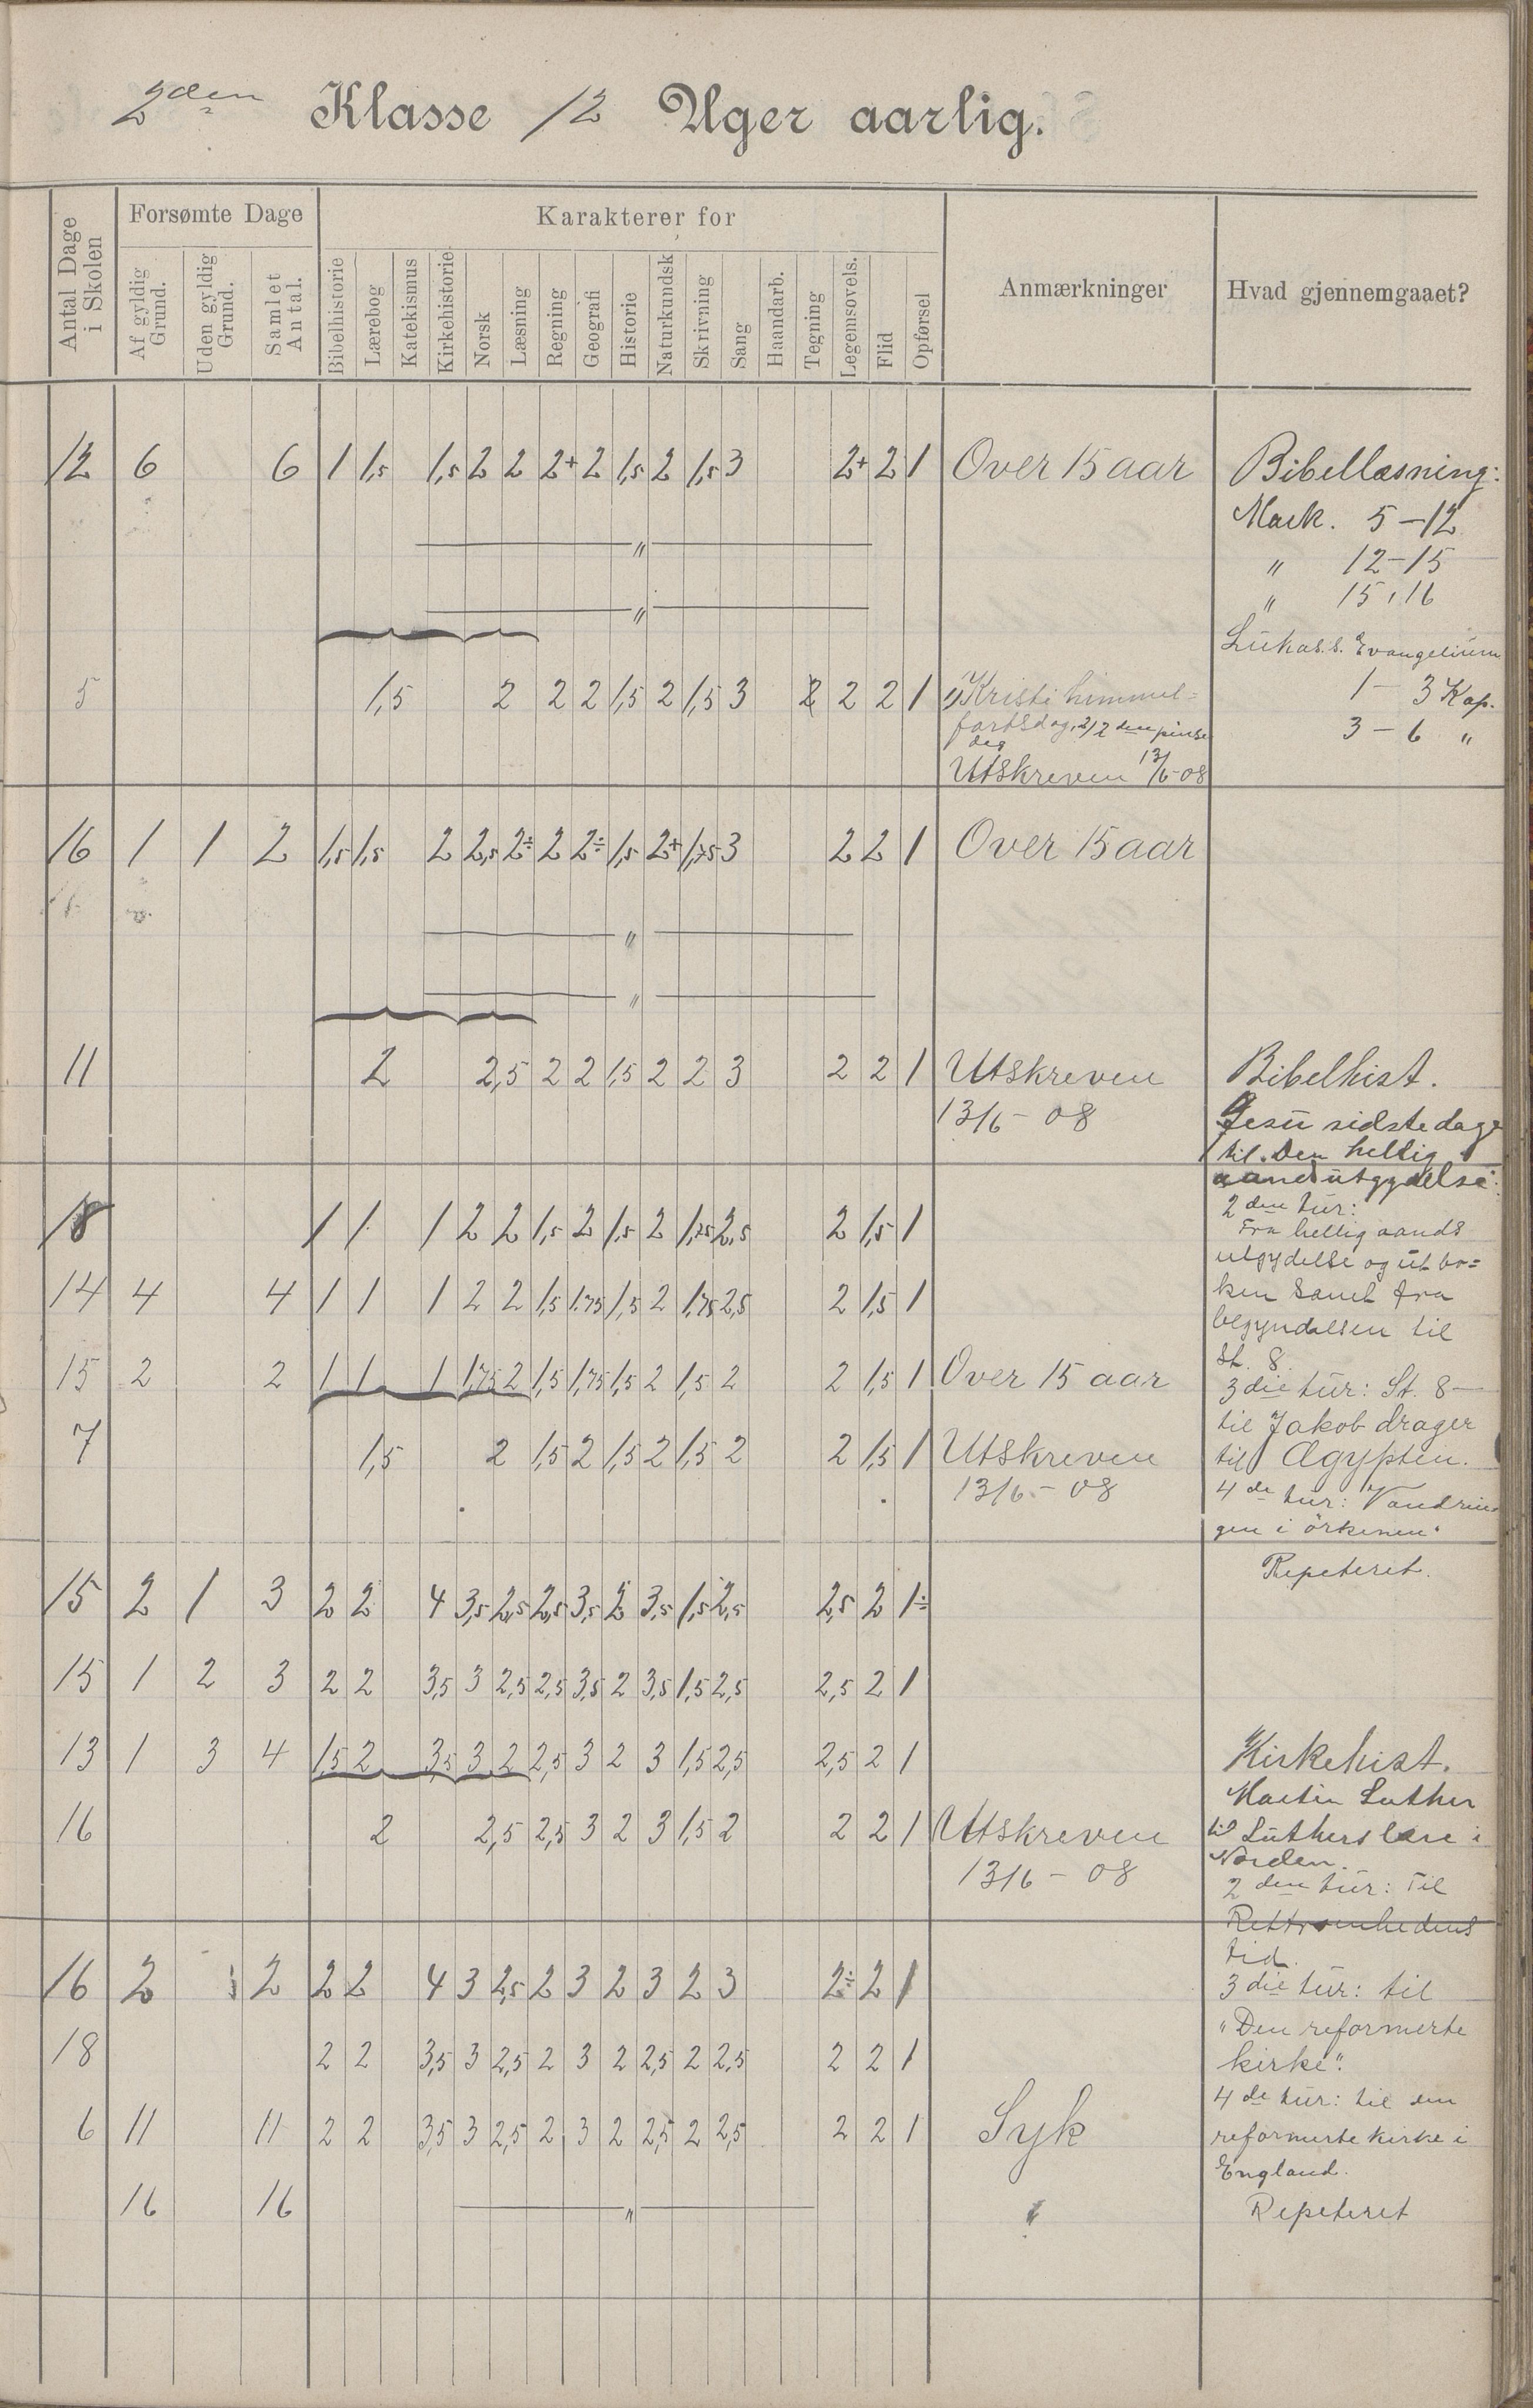 2den Klasse 12 Uger aarlig.
Antal Dage i Skolen
Forsømte Dage
Af gyldig Grund.
Uden gyldig Grund.
Samlet Antal.
Karakterer for
Bibelhistorie
Lærebog
Katekismus
Kirkehistorie
Norsk
Læsning
Regning
Geografi
Historie
Naturkundsk
Skrivning
Sang
Haandarb.
Tegning
Legemsovels.
Flid
Opførsel
Anmærkninger
Hvad gjennemgaaet?
12 6 6 1 1,5 1,5 2 2 2+ 2 1,5 2 1,5 3 2+ 2 1 Over 15 aar Bibellæsning:
Mark. 5-12
" " 12-15
" " 15, 16
Lukas. s. Evangelium
5 1,5 2 2 2 1,5 2 1,5 3 2 2 2 1 1) Kristi himmel= 1 - 3 Kap.
fartsdag, 2/ 2den pinse 3 - 6 "
dag
Utskreven 13/6-08
16 1 1 2 1,5 1,5 2 2,5 2÷ 2 2÷ 1,5 2+ 1,75 3 2 2 1 Over 15 aar
"
"
11 2 2,5 2 2 1,5 2 2 3 2 2 1 Utskreven Bibelhist.
13/6 - 08 Jesu sidste dage
til Den hellig
aands utgydelse.
18 1 1 1 2 2 1,5 2 1,5 2 1,75 2,5 2 1,5 1 2den tur:
Fra hellig aands
utgydelse og ut bo=
14 4 4 1 1 1 2 2 1,5 1,75 1,5 2 1,75 2,5 2 1,5 1 ken samt fra
begyndelsen til
St. 8.
15 2 2 1 1 1 1,75 2 1,5 1,75 1,5 2 1,5 2 2 1,5 1 Over 15 aar 3die tur: St. 8 -
til Jakob drager
7 1,5 2 1,5 2 1,5 2 1,5 2 2 1,5 1 Utskreven til Ægypten.
13/6 - 08 4de tur: Vandrin=
gen i örkenen.
Repeteret.
15 2 1 3 2 2 4 3,5 2,5 2,5 3,5 2 3,5 1,5 2,5 2,5 2 1÷
15 1 2 3 2 2 3,5 3 2,5 2,5 3,5 2 3,5 1,5 2,5 2,5 2 1
13 1 3 4 1,5 2 3,5 3 2 2,5 3 2 3 1,5 2,5 2,5 2 1 Kirkehist.
Martin Luther
16 2 2,5 2,5 3 2 3 1,5 2 2 2 1 Utskreven til Luthers lære i
13/6 - 08 Norden.
2den tur: Til
Rettroenhedens
tid.
16 2 2 2 2 4 3 2,5 2 3 2 3 2 3 2÷ 2 1 3die tur: til
"Den reformerte
18 2 2 3,5 3 2,5 2 3 2 2,5 2 2,5 2 2 1 kirke".
4de tur: til den
6 11 11 2 2 3,5 3 2,5 2 3 2 2,5 2 2,5 2 2 1 Syk reformerte kirke i
England.
16 16 " " Repeteret